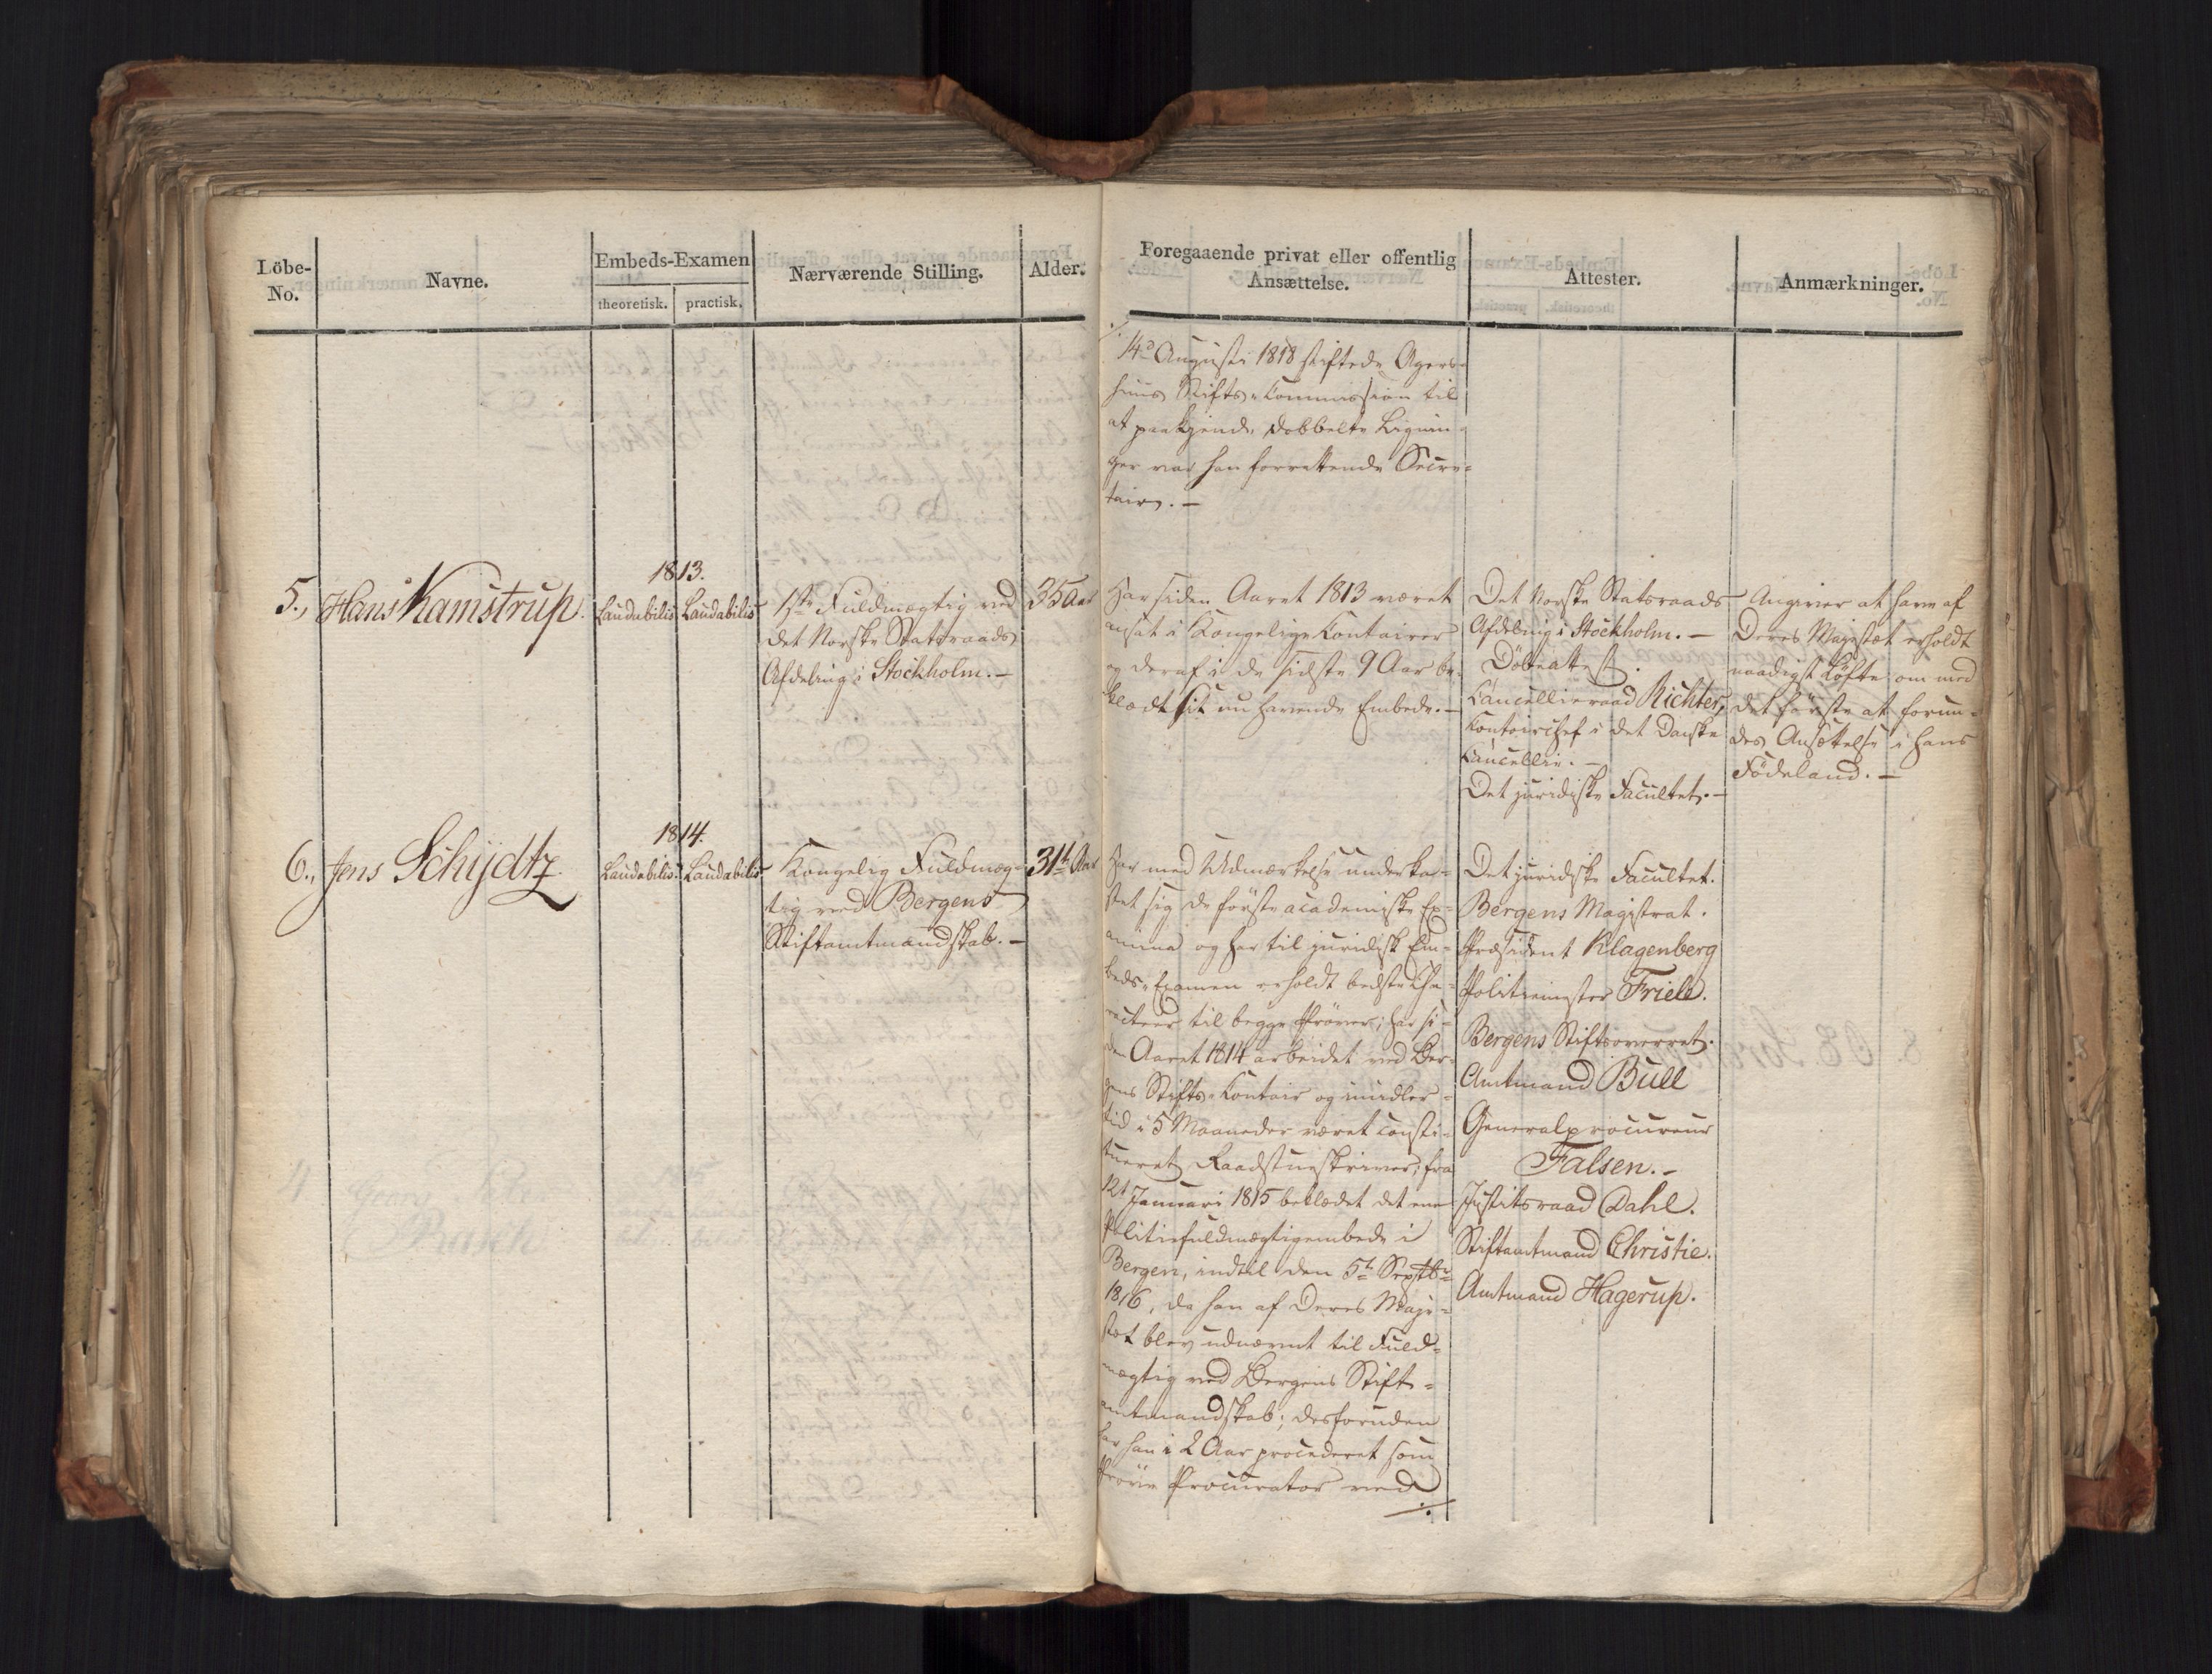 Löbe-
No.
Navne.
Embeds-Examen
theoretisk.
practisk.
Nærværende Stilling.
Alder.
Foregaaende privat eller offentlig
Ansættelse.
Attester.
Anmærkninger.
14d Augusti 1818 stiftede Agers-
huus Stifts-Commission til
at paakjende dobbelte Lignin-
ger var han forrettende Secre-
tair. -
5., Hans Kamstrup.
1813.
Laudabilis Laudabilis
1ste Fuldmægtig ved
det Norske Statsraads
Afdeling i Stockholm. -
35 Aar
Har siden Aaret 1813 været
ansat i Kongelige Contoirer
og deraf i de sidste 9 Aar be-
klædt sit nu havende Embede. -
Det Norske Statsraads
Afdeling i Stockholm. -
Döbeattest.
Cancellieraad Richter,
Contoirchef i det Danske
Cancellie. -
Det juridiske Facultet. -
Angiver at have af
Deres Majestæt erholdt
naadigst Löfte om med
det förste at forun-
des Ansættelse i hans
Födeland. -
6., Jens Schydtz
1814.
Laudabilis. Laudabilis
Kongelig Fuldmæg-
tig ved Bergens
Stiftamtmandskab. -
31½ Aar
Har med Udmærkelse underka-
stet sig de förste academiske Ex-
amina og har til juridisk Em-
beds-Examen erholdt bedste Cha-
racteer til begge Pröver; har si-
den Aaret 1814 arbeidet ved Ber-
gens Stifts-Contoir og imidler-
tid i 5 Maaneder været consti-
tueret Raadstueskriver; fra
12t Januari 1815 beklædet det ene
Politiefuldmægtigembede i
Bergen, indtil den 5t Septbr
1816, da han af Deres Maje-
stæt blev udnævnt til Fuld-
mægtig ved Bergens Stift-
amtmandskab; desforuden
har han i 2 Aar procederet som
Pröve Procurator ved
./.
Det juridiske Facultet.
Bergens Magistrat.
Præsident Klagenberg
Politiemester Friele.
Bergens Stiftsoverret.
Amtmand Bull
Generalprocureur
Falsen. -
Justitsraad Dahl.
Stiftamtmand Christie.
Amtmand Hagerup.